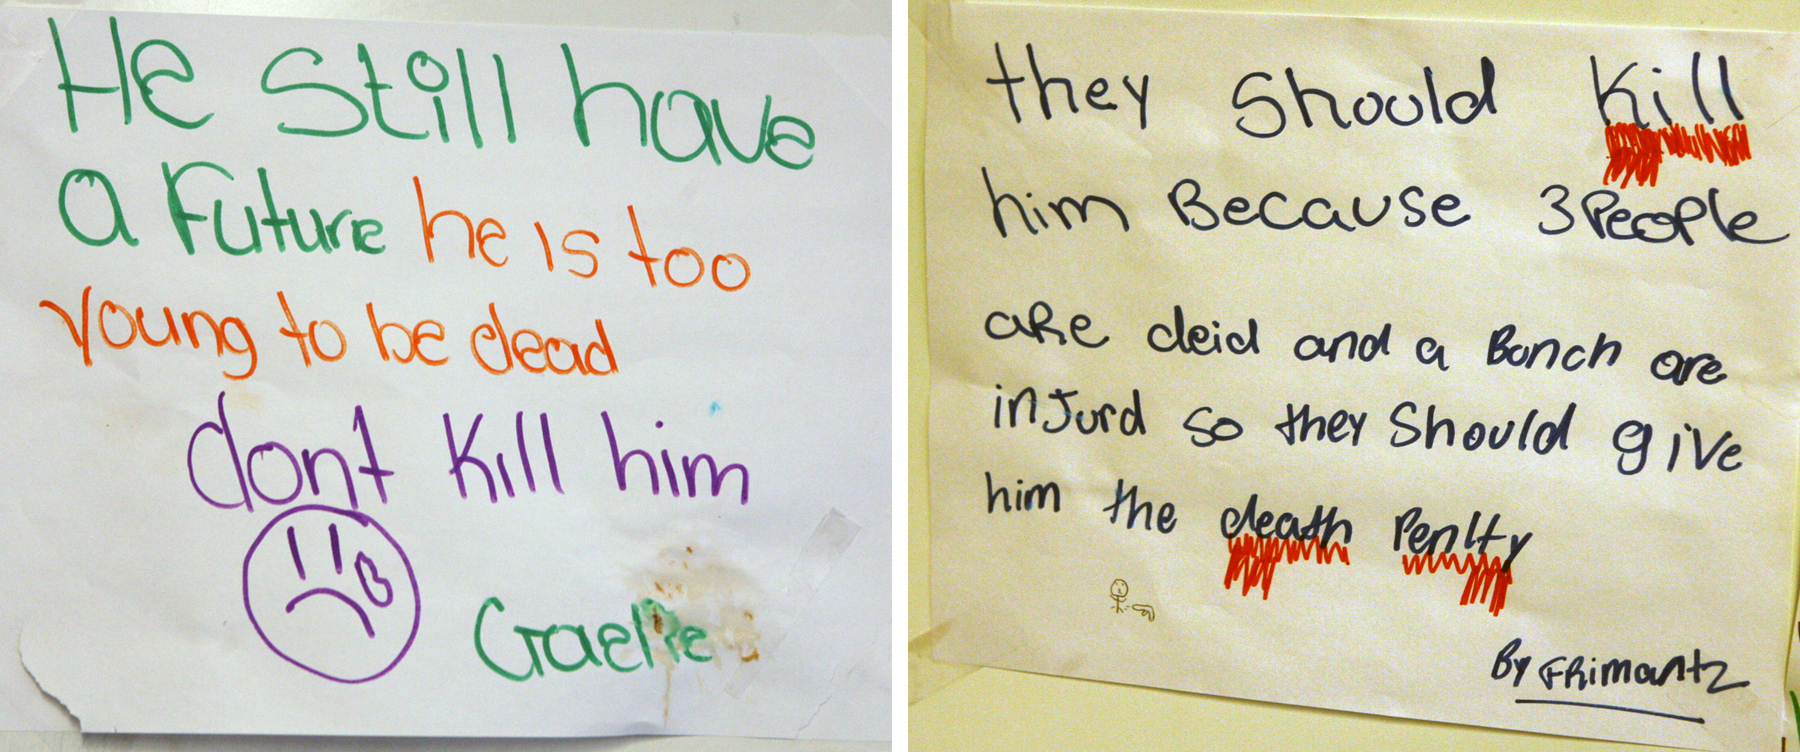 He still have
a Future he is too
young to be dead
dont kill him
Gaelle
they should kill
him Because 3 People
aRe deid and a Bonch are
injurd so they should give
him the death Penlty
By FRimantz